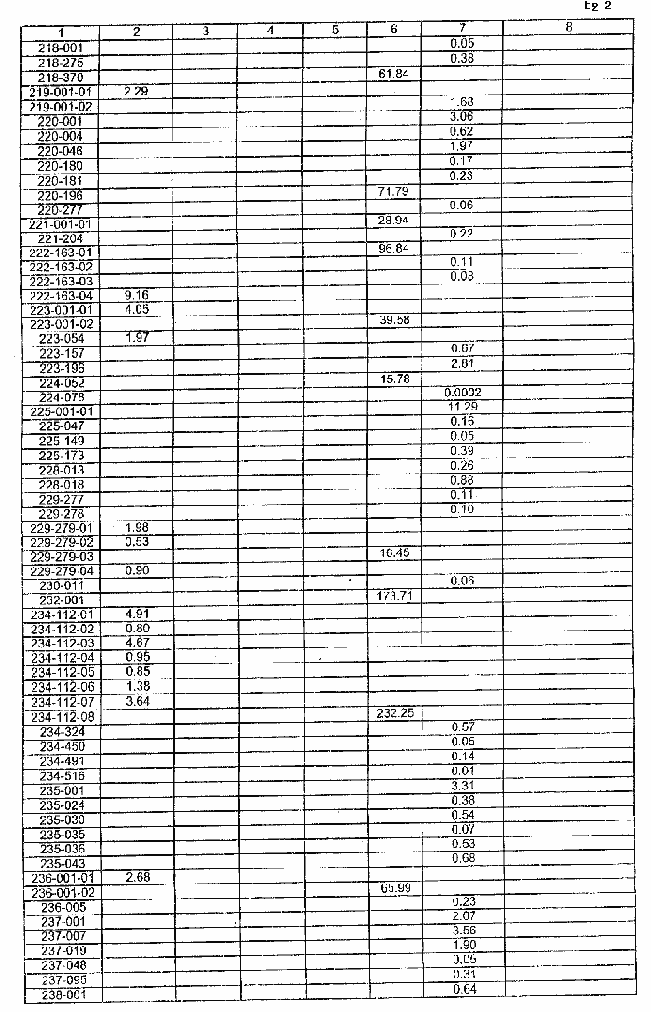 tg 2
1 2 3 4 5 6 7 8
218-001 0.05
218-275 0.33
218-370 61.84
219-001-01 2.29
219-001-02 1.63
220-001 3.06
220-004 0.62
220-046 1.97
220-180 0.17
220-181 0.23
220-196 71.79
220-277 0.06
221-001-01 29.94
221-204 0.22
222-163-01 96.84
222-163-02 0.11
222-163-03 0.03
222-163-04 9.16
223-001-01 4.05
223-001-02 39.58
223-054 1.97
223-157 0.07
223-196 2.01
224-052 15.78
224-078 0.0032
225-001-01 11.29
225-047 0.15
225-149 0.05
225-173 0.39
228-013 0.26
228-018 0.83
229-277 0.11
229-278 0.10
229-279-01 1.98
229-279-02 0.63
229-279-03 16.45
229-279-04 0.90
230-011 0.05
232-001 173.71
234-112-01 4.91
234-112-02 0.80
234-112-03 4.67
234-112-04 0.95
234-112-05 0.85
234-112-06 1.38
234-112-07 3.64
234-112-08 232.25
234-324 0.57
234-450 0.05
234-491 0.14
234-516 0.01
235-001 3.31
235-024 0.38
235-030 0.54
235-035 0.07
235-036 0.53
235-043 0.68
236-001-01 2.68
236-001-02 65.99
236-005 0.23
237-001 2.07
237-007 3.56
237-019 1.90
237-048
237-095 0.31
238-001 0.64